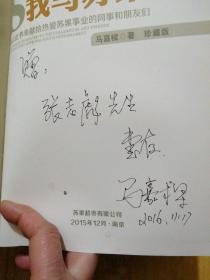 我与苏果
书奉献给热爱苏果事业的同事和朋友们
马嘉樑 著 珍藏版
赠：
张志刚 先生
惠存
马嘉樑
2016.11.17
苏果超市有限公司
2015年12月·南京